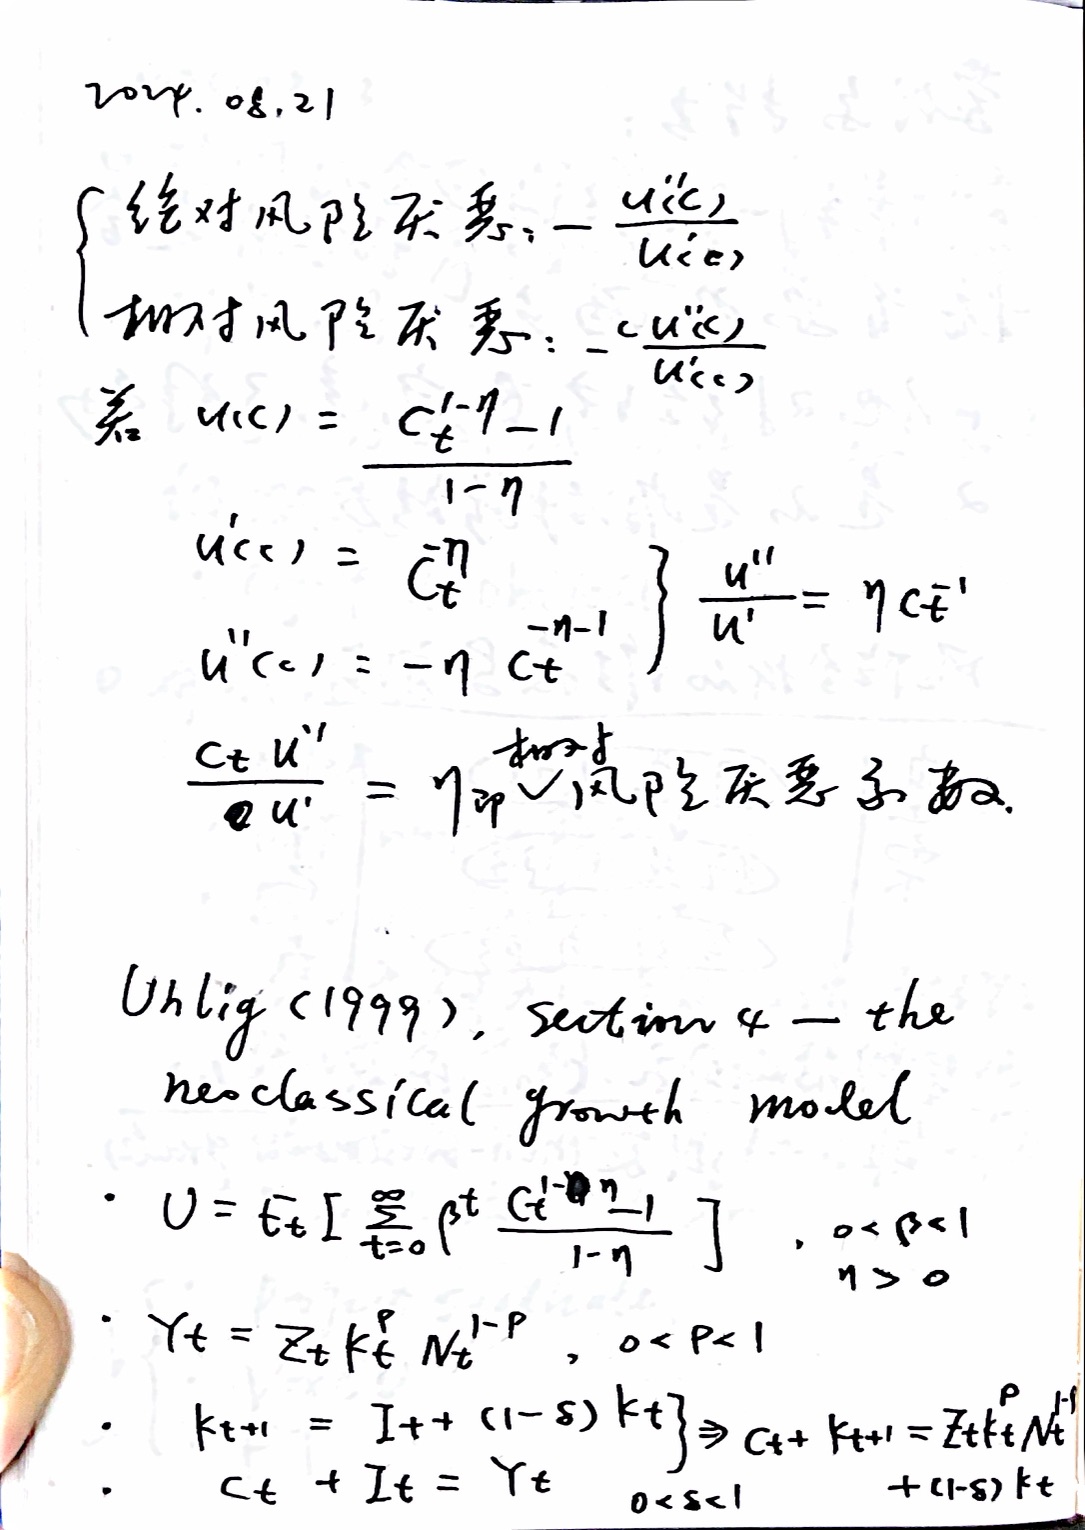 2024.08.21
绝对风险厌恶: - u''(c) / u'(c)
相对风险厌恶: - c u''(c) / u'(c)
若 u(c) = (C_t^{1-η} - 1) / (1-η)
u'(c) = C_t^{-η}
u''(c) = -η C_t^{-η-1} } u''/u' = η C_t^{-1}
C_t u'' / u' = η 即相对风险厌恶系数.
Uhlig (1999), section 4 — the
neoclassical growth model
· U = E_t [ ∑_{t=0}^{∞} β^t (C_t^{1-η} - 1) / (1-η) ] , 0<β<1
η > 0
· Y_t = Z_t K_t^ρ N_t^{1-ρ} , 0<ρ<1
· K_{t+1} = I_t + (1-δ) K_t } ⇒ C_t + K_{t+1} = Z_t K_t^ρ N_t^{1-ρ}
· C_t + I_t = Y_t 0<δ<1 + (1-δ) K_t